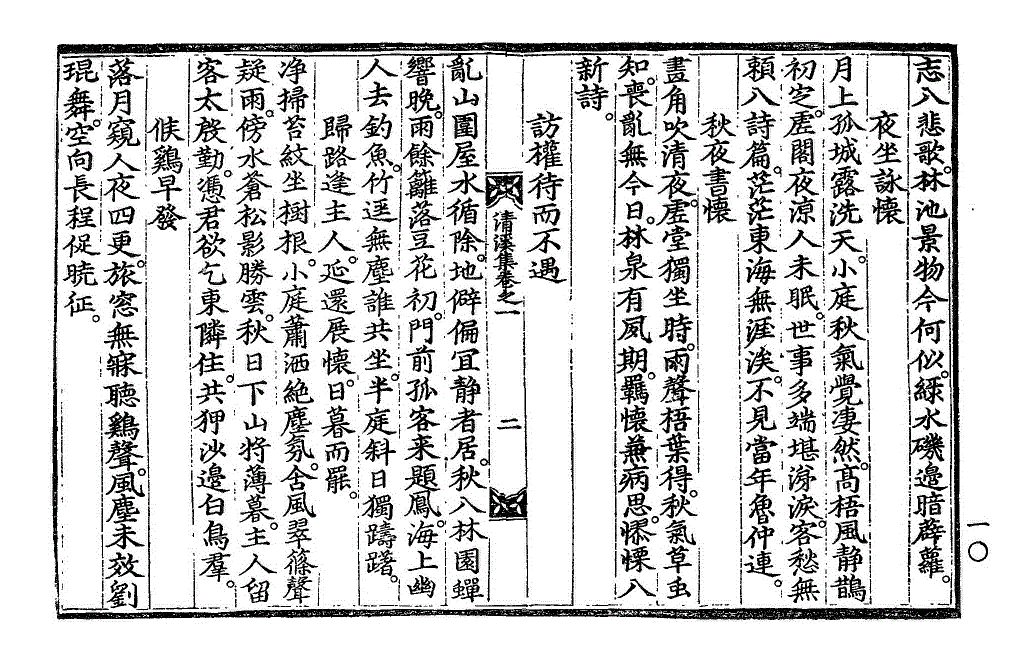 志入悲歌。林池景物今何似。綠水磯邊暗薜蘿。
夜坐詠懷
月上孤城露洗天。小庭秋氣覺凄然。高梧風静鵲
初定。虛閣夜凉人未眠。世事多端堪涕淚。客愁無
賴入詩篇。茫茫東海無涯涘。不見當年魯仲連。
秋夜書懷
畫角吹清夜。虛堂獨坐時。雨聲梧葉得。秋氣草虫
知。喪亂無今日。林泉有夙期。羈懷兼病思。憀慄入
新詩。
訪權待而不遇
清溪集卷之一
二
亂山圍屋水循除。地僻偏宜静者居。秋入林園蟬
響晚。雨餘籬落豆花初。門前孤客来題鳳。海上幽
人去釣魚。竹逕無塵誰共坐。半庭斜日獨躊躇。
歸路逢主人。延還展懷。日暮而罷。
净掃苔紋坐樹根。小庭蕭洒絶塵氛。含風翠篠聲
疑雨。傍水蒼松影勝雲。秋日下山将薄暮。主人留
客太殷勤。憑君欲乞東隣住。共狎沙邊白鳥羣。
候鷄早發
落月窺人夜四更。旅窓無寐聽鷄聲。風塵未效劉
琨舞。空向長程促曉征。
一〇